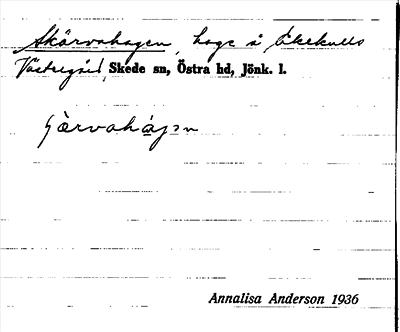 Skärvahagen, hage å Ekekulls
Västregård, Skede sn, Östra hd, Jönk. l.
Annalisa Anderson 1936